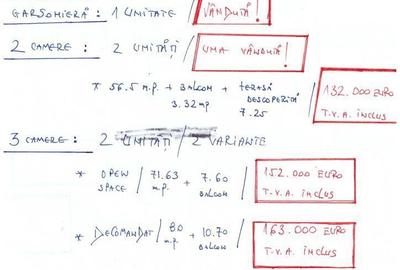 GARSONIERĂ: 1 UNITATE / VÂNDUTĂ!
2 CAMERE: 2 UNITĂȚI / UNA VÂNDUTĂ!
* 56.5 m.p. + BALCON 3.32 mp + TERASĂ DESCOPERITĂ 7.25 / 132.000 EURO T.V.A. INCLUS
3 CAMERE: 2 UNITĂȚI / 2 VARIANTE
* OPEN SPACE / 71.63 m.p. + 7.60 BALCON / 152.000 EURO T.V.A. INCLUS
* DECOMANDAT / 80 m.p. + 10.70 BALCON / 163.000 EURO T.V.A. INCLUS